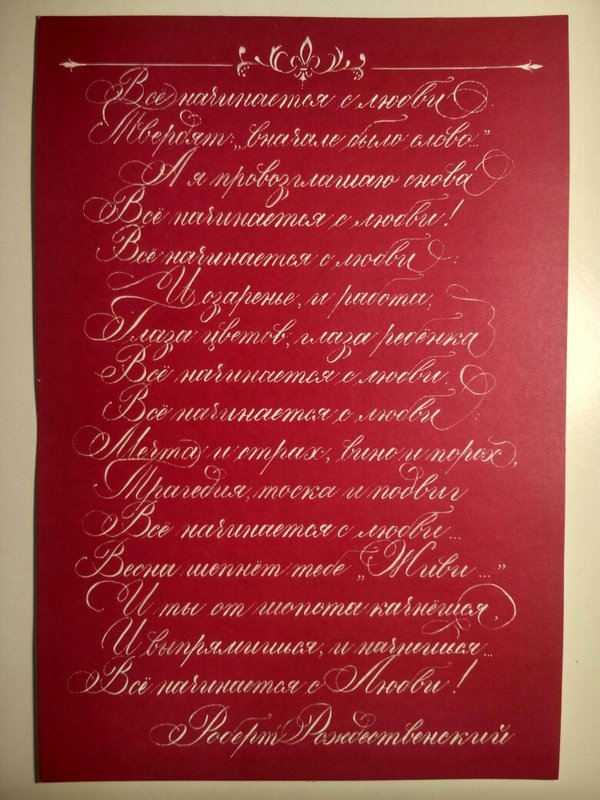 Всё начинается с любви
Твердят: „вначале было слово..."
А я провозглашаю снова
Всё начинается с любви!
Всё начинается с любви:
И озаренье, и работа,
Глаза цветов, глаза ребёнка
Всё начинается с любви.
Всё начинается с любви
Мечта и страх, вино и порох,
Трагедия, тоска и подвиг
Всё начинается с любви...
Весна шепнёт тебе „Живи..."
И ты от шопота качнёшся,
И выпрямишься, и начнешься...
Всё начинается с Любви!
Роберт Рождественский